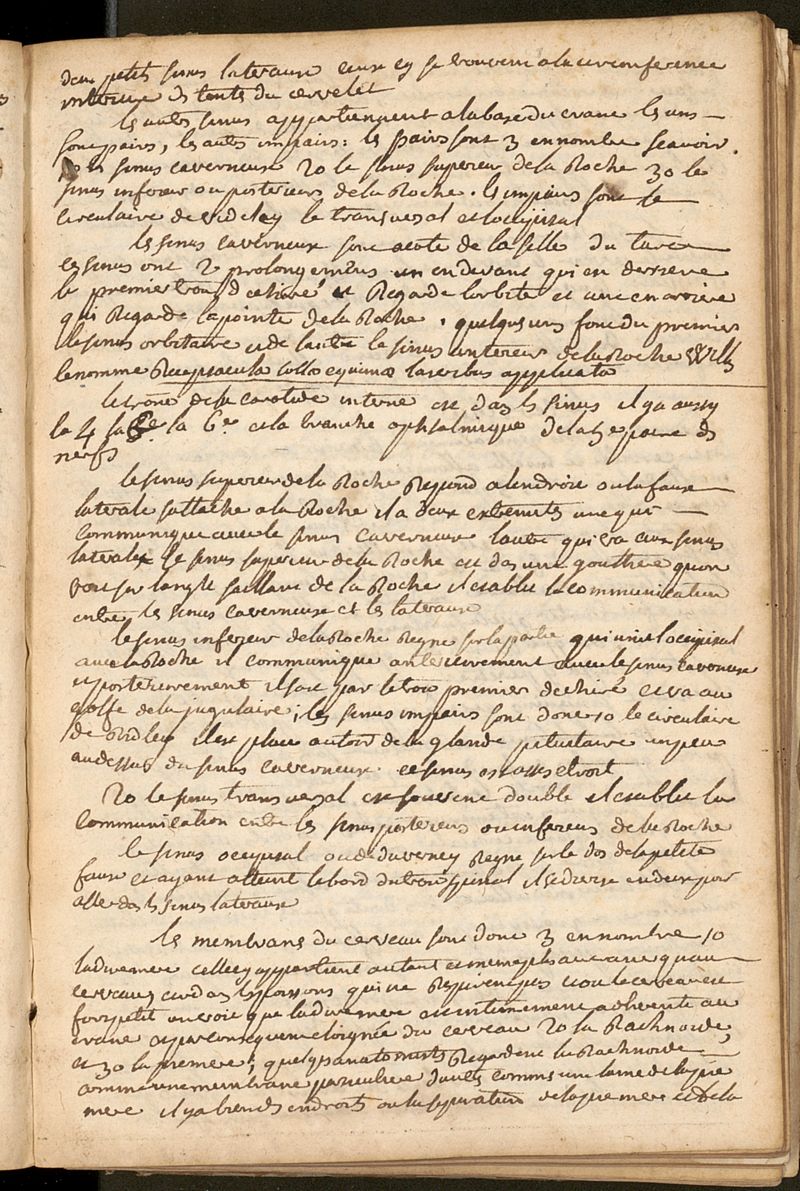 deux petits sinus lateraux ceux cy se trouvent a la circonference
interieure des tente du cervelet
les autres sinus appartiennent a la base du crane les uns
sont pairs, les autres impairs : les pairs sont 3 en nombre scavoir
les sinus caverneuse 20 le sinus superieur de la Roche 30 le
sinus inferieur ou posterieurs de la Roche . les impairs sont le
circulaire de rideley le transversal et loccipital
les sinus caverneux sont a coté de la selle du turc
ces sinus ont 2 prolongemens un en devant qui en derriere
le premier trou dechiré et Regarde lorbite et une en arriere
qui Regarde la pointe de la Roche , quelques uns font du premier
le sinus orbitaire et de lautre le sinus anterieur de la Roche Willis
le nomme Receptacula sello equinae lateribus applicata
le tronc de la carotide interne est dans les sinus il y a aussy
la 4 la 6e et la branche ophtalmique de la 5e paire des
nerfs
le sinus superieur de la Roche Repond a lendroit ou la faux
laterale sattache a la Roche il a deux extremités une qui
communique avec le sinus caverneux lautre qui va aux sinus
lateralx le sinus superieur de la Roche est dans une gouttiere quon
voit sur langle saillant de la Roche il etablit la communication
entre les sinus caverneuse et les lateraux
le sinus inferieur de la Roche Regne sur la partie qui unit loccipital
avec la Roche il communique anterieurement avec le sinus caverneux
et posterieurement il sort par le trou premier dechiré et va au
golfe de la jugulaire ; les sinus impairs sont donc 10 le circulaire
de Ridley il est placé autour de la glande pituitaire un peu
au dessus du sinus caverneux . ce sinus est assez etroit
20 le sinus transversal est souvent double il etablit la
communication entre les sinus posterieurs ou inferieurs de la Roche
le sinus occipital ou de duverney Regne sur le dos de la petite
faux et ayant atteint le bord du trou occipital il se divise en deux pour
aller dans les sinus lateraux
les membranes du cerveau sont donc 3 en nombre 10
la dure mere celle cy appartient autant et meme plus au crane quau
cerveau, car dans les poissons qui ne Respirent pas et ou le cerveau est
fort petit on voit que la dure mere est intimement adherente au
crane et par consequent eloignée du cerveau 20 la Rachnoide,
et 30 la pie mere ; quelques anatomistes Regardent la Rachnoide
comme une membrane particuliere dautres comme une lame de la pie
mere il y a bien des endroits ou la separation de la pie mere et de la